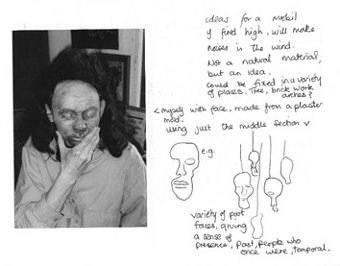 ideas for a mobil
if fixed high, will make
noises in the wind.
Not a natural material,
but an idea.
could be fixed in a variety
of places. Tree, brick work
arches?
< myself with face, made from a plaster
mold.
using just the middle section v
e.g.
variety of
faces, giving
a sense of
presence, Past, People who
once were, temporal.